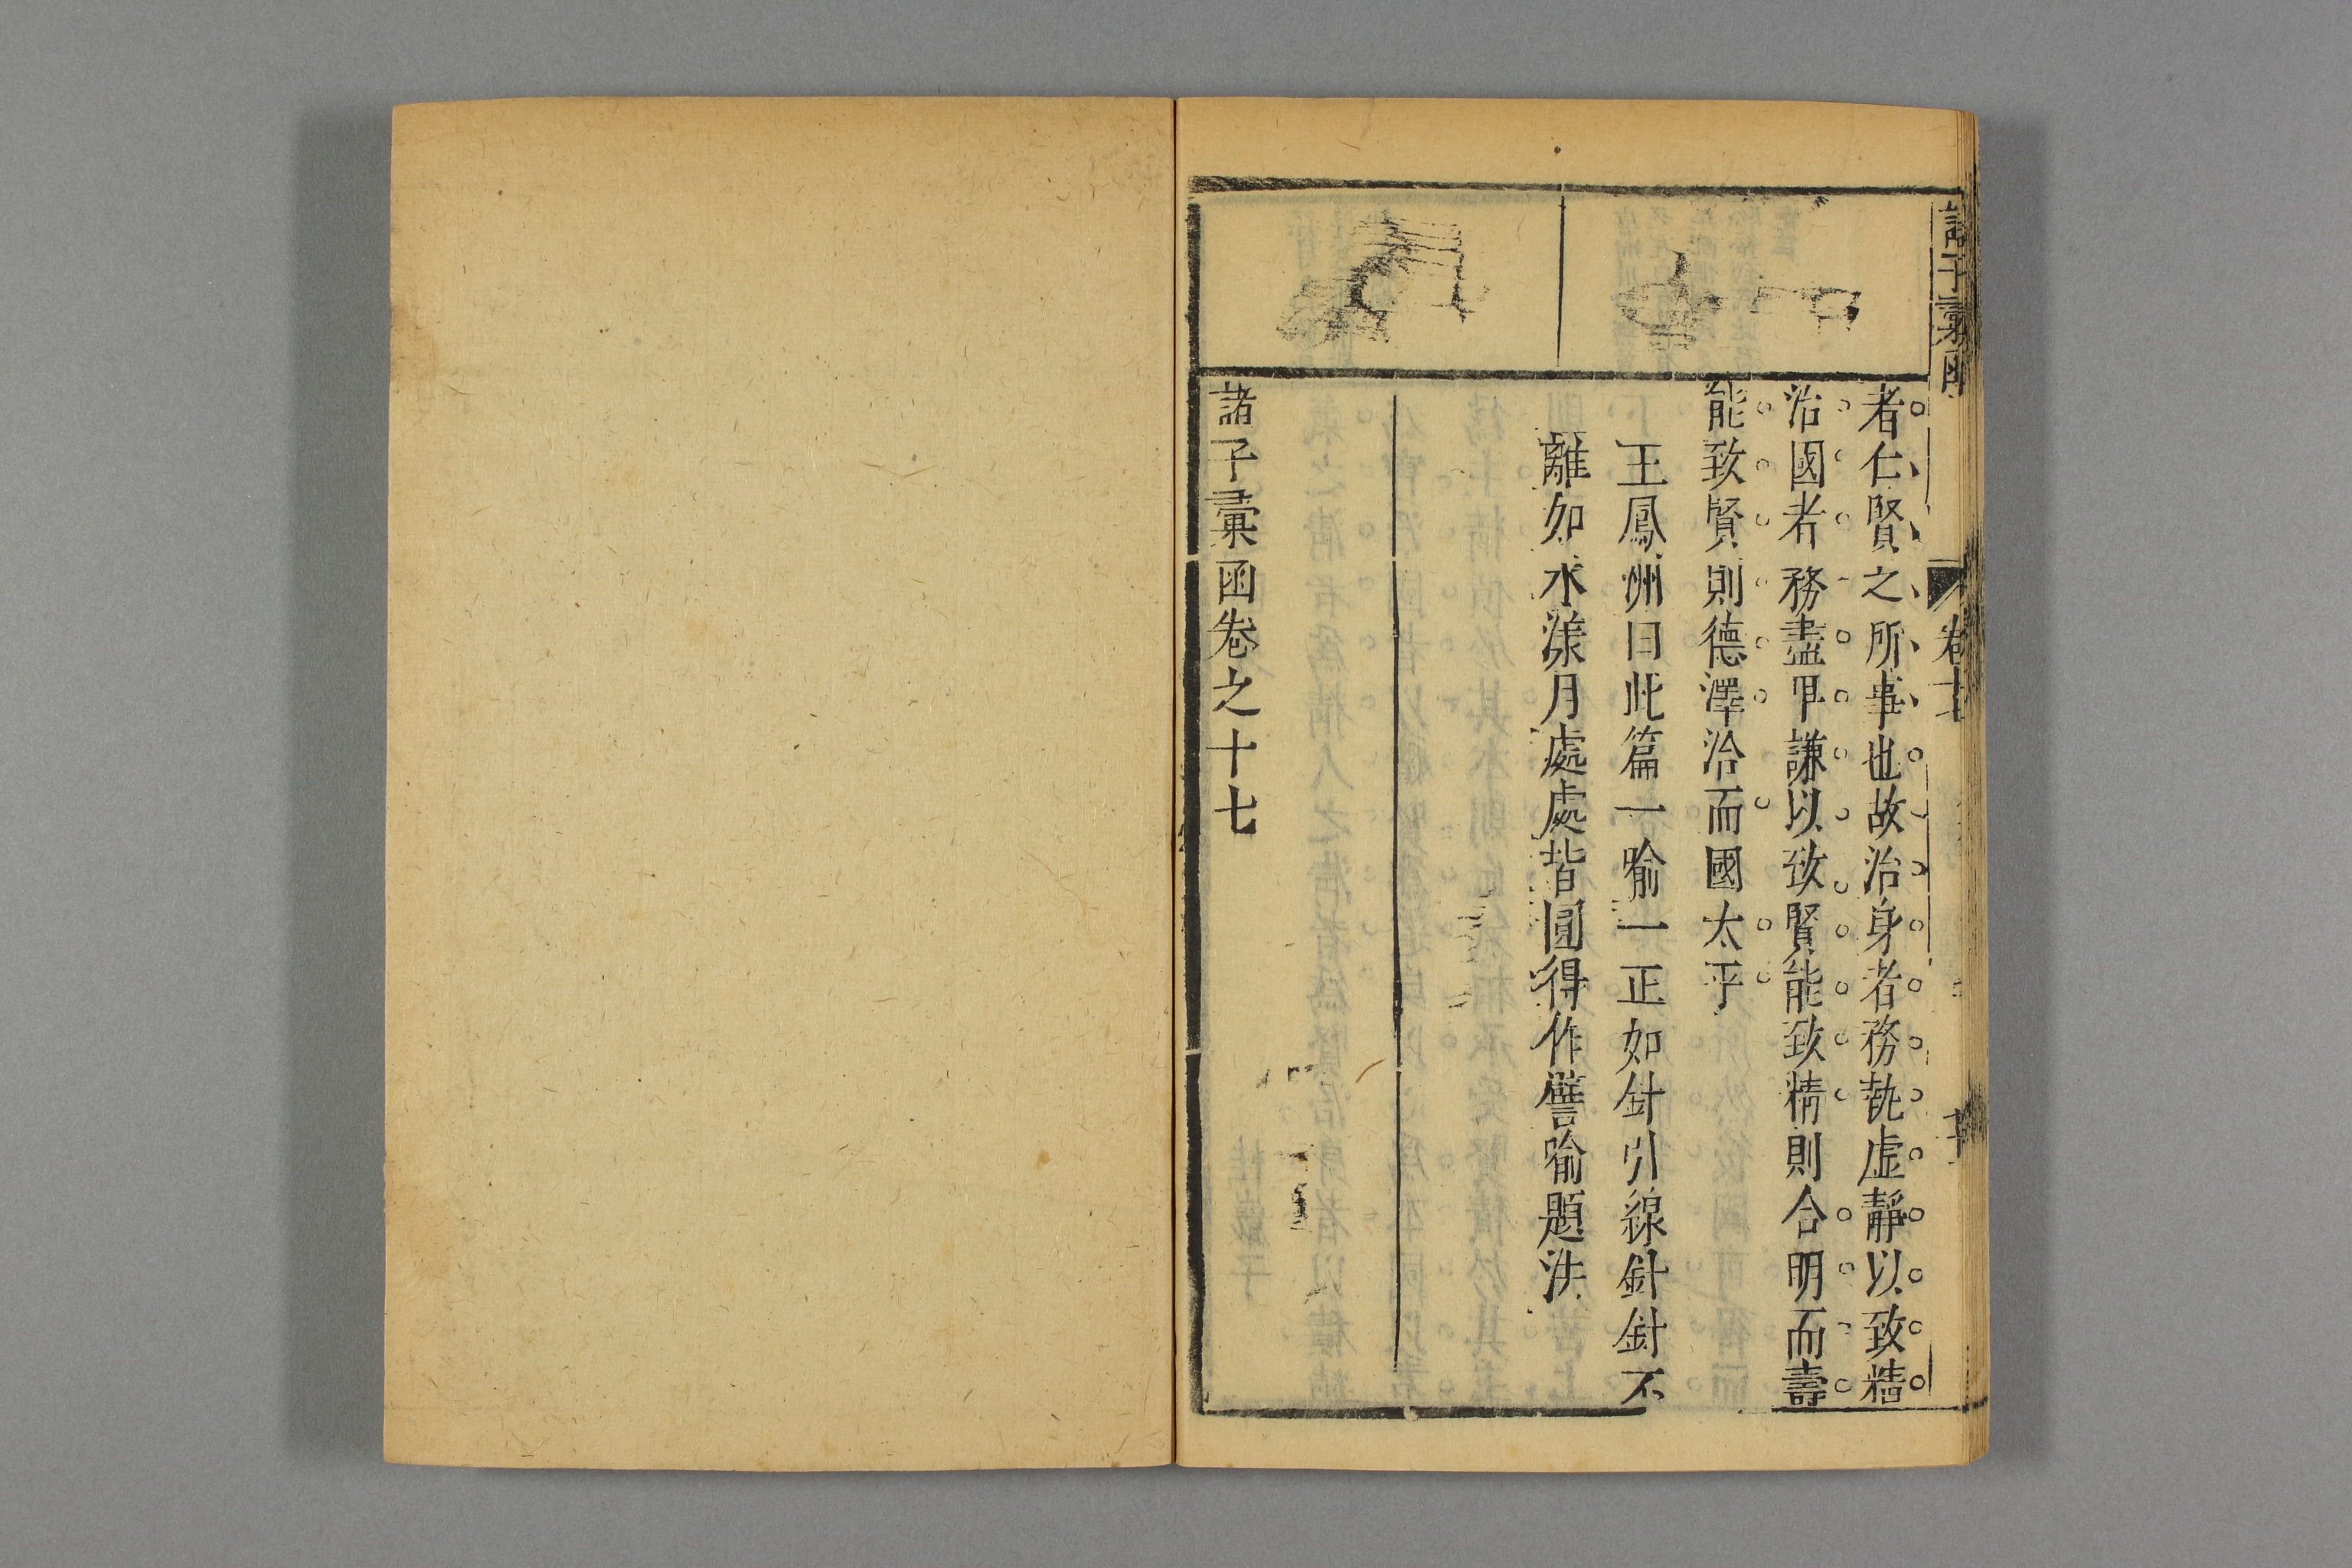 諸子彙函
卷十
者仁賢之所事也故治身者務執虛靜以致精
治國者務盡甲謙以致賢能致精則合明而壽
能致賢則德澤洽而國太平
王鳳洲曰此篇一喻一正如針引線針針不
離如水漾月處處皆圓得作譬喻題法
諸子彙函卷之十七